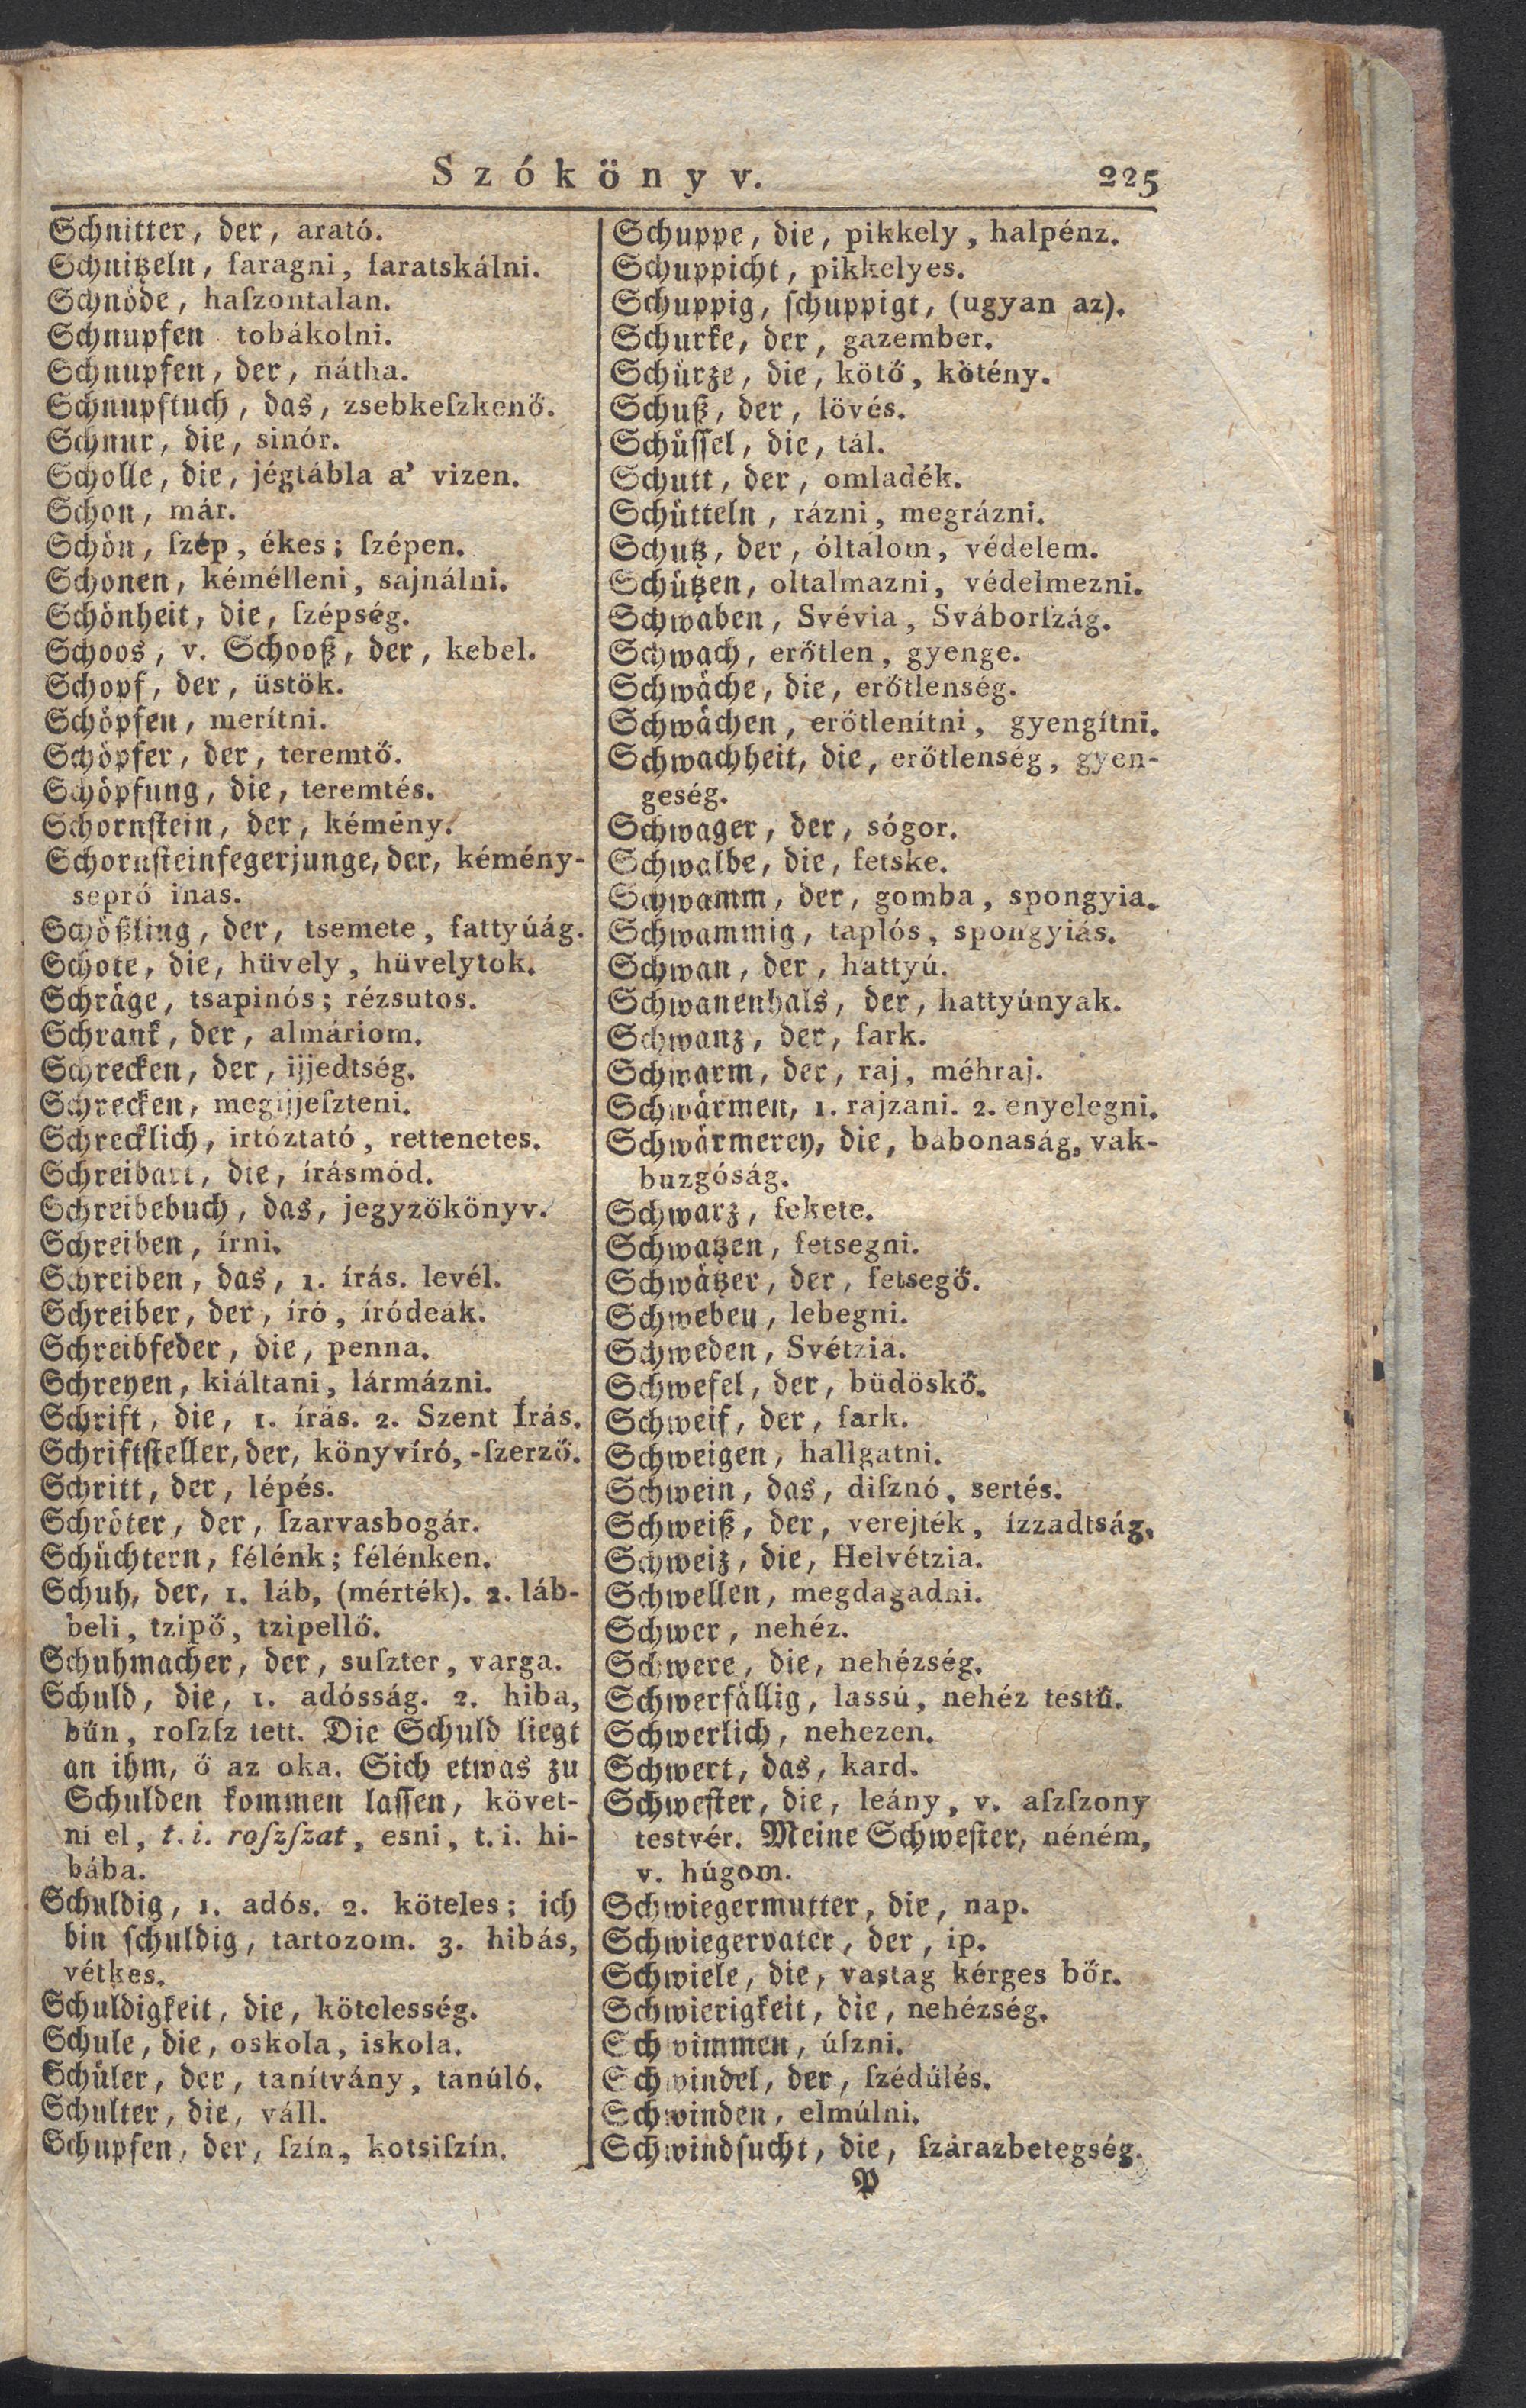 Szókönyv. 225
Schnitter, der, arató.
Schnitzeln, faragni, faratskálni.
Schnöde, haſzontalan.
Schnupfen tobákolni.
Schnupfen, der, nátha.
Schnupftuch, das, zsebkeſzkenő.
Schnur, die, sinór.
Scholle, die, jégtábla a' vizen.
Schon, már.
Schön, ſzép, ékes; ſzépen.
Schonen, kémélleni, sajnálni.
Schönheit, die, ſzépség.
Schoos, v. Schooß, der, kebel.
Schopf, der, üstök.
Schöpfen, merítni.
Schöpfer, der, teremtő.
Schöpfung, die, teremtés.
Schornſtein, der, kémény.
Schornſteinfegerjunge, der, kémény-
seprő inas.
Schößling, der, tsemete, fattyúág.
Schote, die, hüvely, hüvelytok.
Schräge, tsapinós; rézsutos.
Schrank, der, almáriom.
Schrecken, der, ijjedtség.
Schrecken, megijjeſzteni.
Schrecklich, irtóztató, rettenetes.
Schreibart, die, írásmód.
Schreibebuch, das, jegyzőkönyv.
Schreiben, írni.
Schreiben, das, 1. írás. levél.
Schreiber, der, író, íródeák.
Schreibfeder, die, penna.
Schreyen, kiáltani, lármázni.
Schrift, die, 1. írás. 2. Szent Írás.
Schriftſteller, der, könyvíró, -ſzerző.
Schritt, der, lépés.
Schröter, der, ſzarvasbogár.
Schüchtern, félénk; félénken.
Schuh, der, 1. láb, (mérték). 2. láb-
beli, tzipő, tzipellő.
Schuhmacher, der, suſzter, varga.
Schuld, die, 1. adósság. 2. hiba,
bűn, roſzſz tett. Die Schuld liegt
an ihm, ő az oka. Sich etwas zu
Schulden kommen laſſen, követ-
ni el, t. i. roſzſzat, esni, t. i. hi-
bába.
Schuldig, 1. adós. 2. köteles; ich
bin ſchuldig, tartozom. 3. hibás,
vétkes.
Schuldigkeit, die, kötelesség.
Schule, die, oskola, iskola.
Schüler, der, tanítvány, tanúló.
Schulter, die, váll.
Schupfen, der, ſzín, kotsiſzín.
Schuppe, die, pikkely, halpénz.
Schuppicht, pikkelyes.
Schuppig, ſchuppigt, (ugyan az).
Schurke, der, gazember.
Schürze, die, kötő, kötény.
Schuß, der, lövés.
Schüſſel, die, tál.
Schutt, der, omladék.
Schütteln, rázni, megrázni.
Schutz, der, óltalom, védelem.
Schützen, oltalmazni, védelmezni.
Schwaben, Svévia, Sváborſzág.
Schwach, erőtlen, gyenge.
Schwäche, die, erőtlenség.
Schwächen, erőtlenítni, gyengítni.
Schwachheit, die, erőtlenség, gyen-
geség.
Schwager, der, sógor.
Schwalbe, die, fetske.
Schwamm, der, gomba, spongyia.
Schwammig, taplós, spongyiás.
Schwan, der, hattyú.
Schwanenhals, der, hattyúnyak.
Schwanz, der, fark.
Schwarm, der, raj, méhraj.
Schwärmen, 1. rajzani. 2. enyelegni.
Schwärmerey, die, babonaság, vak-
buzgóság.
Schwarz, fekete.
Schwatzen, fetsegni.
Schwätzer, der, fetsegő.
Schweben, lebegni.
Schweden, Svétzia.
Schwefel, der, büdöskő.
Schweif, der, fark.
Schweigen, hallgatni.
Schwein, das, diſznó, sertés.
Schweiß, der, verejték, ízzadtság.
Schweiz, die, Helvétzia.
Schwellen, megdagadni.
Schwer, nehéz.
Schwere, die, nehézség.
Schwerfällig, lassú, nehéz testű.
Schwerlich, nehezen.
Schwert, das, kard.
Schweſter, die, leány, v. aſzſzony
testvér. Meine Schweſter, néném,
v. húgom.
Schwiegermutter, die, nap.
Schwiegervater, der, ip.
Schwiele, die, vastag kérges bőr.
Schwierigkeit, die, nehézség.
Schwimmen, úſzni.
Schwindel, der, ſzédülés.
Schwinden, elmúlni.
Schwindſucht, die, ſzárazbetegség.
P